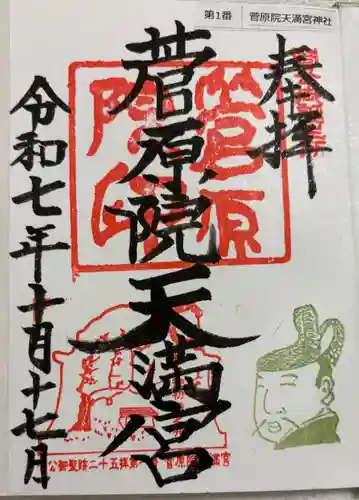 第1番 菅原院天満宮神社
奉拝
菅原院天満宮
令和七年十月十七日
菅原
院印
公御聖跡二十五拝第 菅原院 満宮